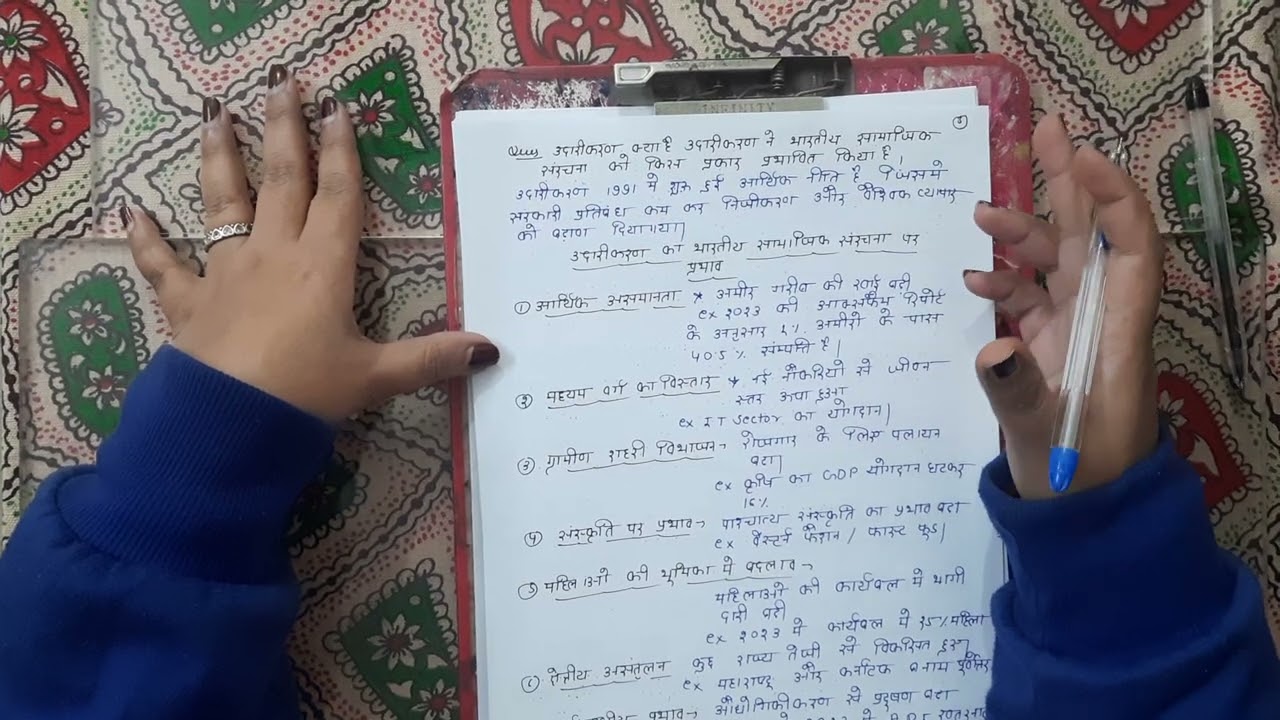 INFINITY
①
Ques उदारीकरण क्या है उदारीकरण ने भारतीय सामाजिक
संरचना को किस प्रकार प्रभावित किया है।
उदारीकरण 1991 मे शुरू हुई आर्थिक नीति है जिसमे
सरकारी प्रतिबंध कम कर निजीकरण और वैश्विक व्यापार
को बढ़ावा दिया गया।
उदारीकरण का भारतीय सामाजिक संरचना पर
प्रभाव
① आर्थिक असमानता * अमीर गरीब की खाई बढी
ex २०२३ की आक्सफैम रिपोर्ट
के अनुसार 1% अमीरो के पास
40.5% संम्पत्ति है।
② मध्यम वर्ग का विस्तार * नई नौकरियो से जीवन
स्तर ऊंचा हुआ
ex IT sector का योगदान।
③ ग्रामीण शहरी विभाजन → रोजगार के लिए पलायन
बढा।
ex कृषि का GDP योगदान घटकर
16%
④ संस्कृति पर प्रभाव → पाश्चात्य संस्कृति का प्रभाव बढा
ex वेस्टर्न फैशन / फास्ट फूड।
⑤ महिलाओ की भूमिका मे बदलाव →
महिलाओ की कार्यबल मे भागी
दारी बढी
ex २०२३ मे कार्यबल मे २5% महिला
⑥ क्षेत्रीय असंतुलन कुछ राज्य तेजी से विकसित हुए
ex महाराष्ट्र और कर्नाटक बनाम पूर्वोत्तर
प्रभाव → औद्योगिकीकरण से प्रदूषण बढा